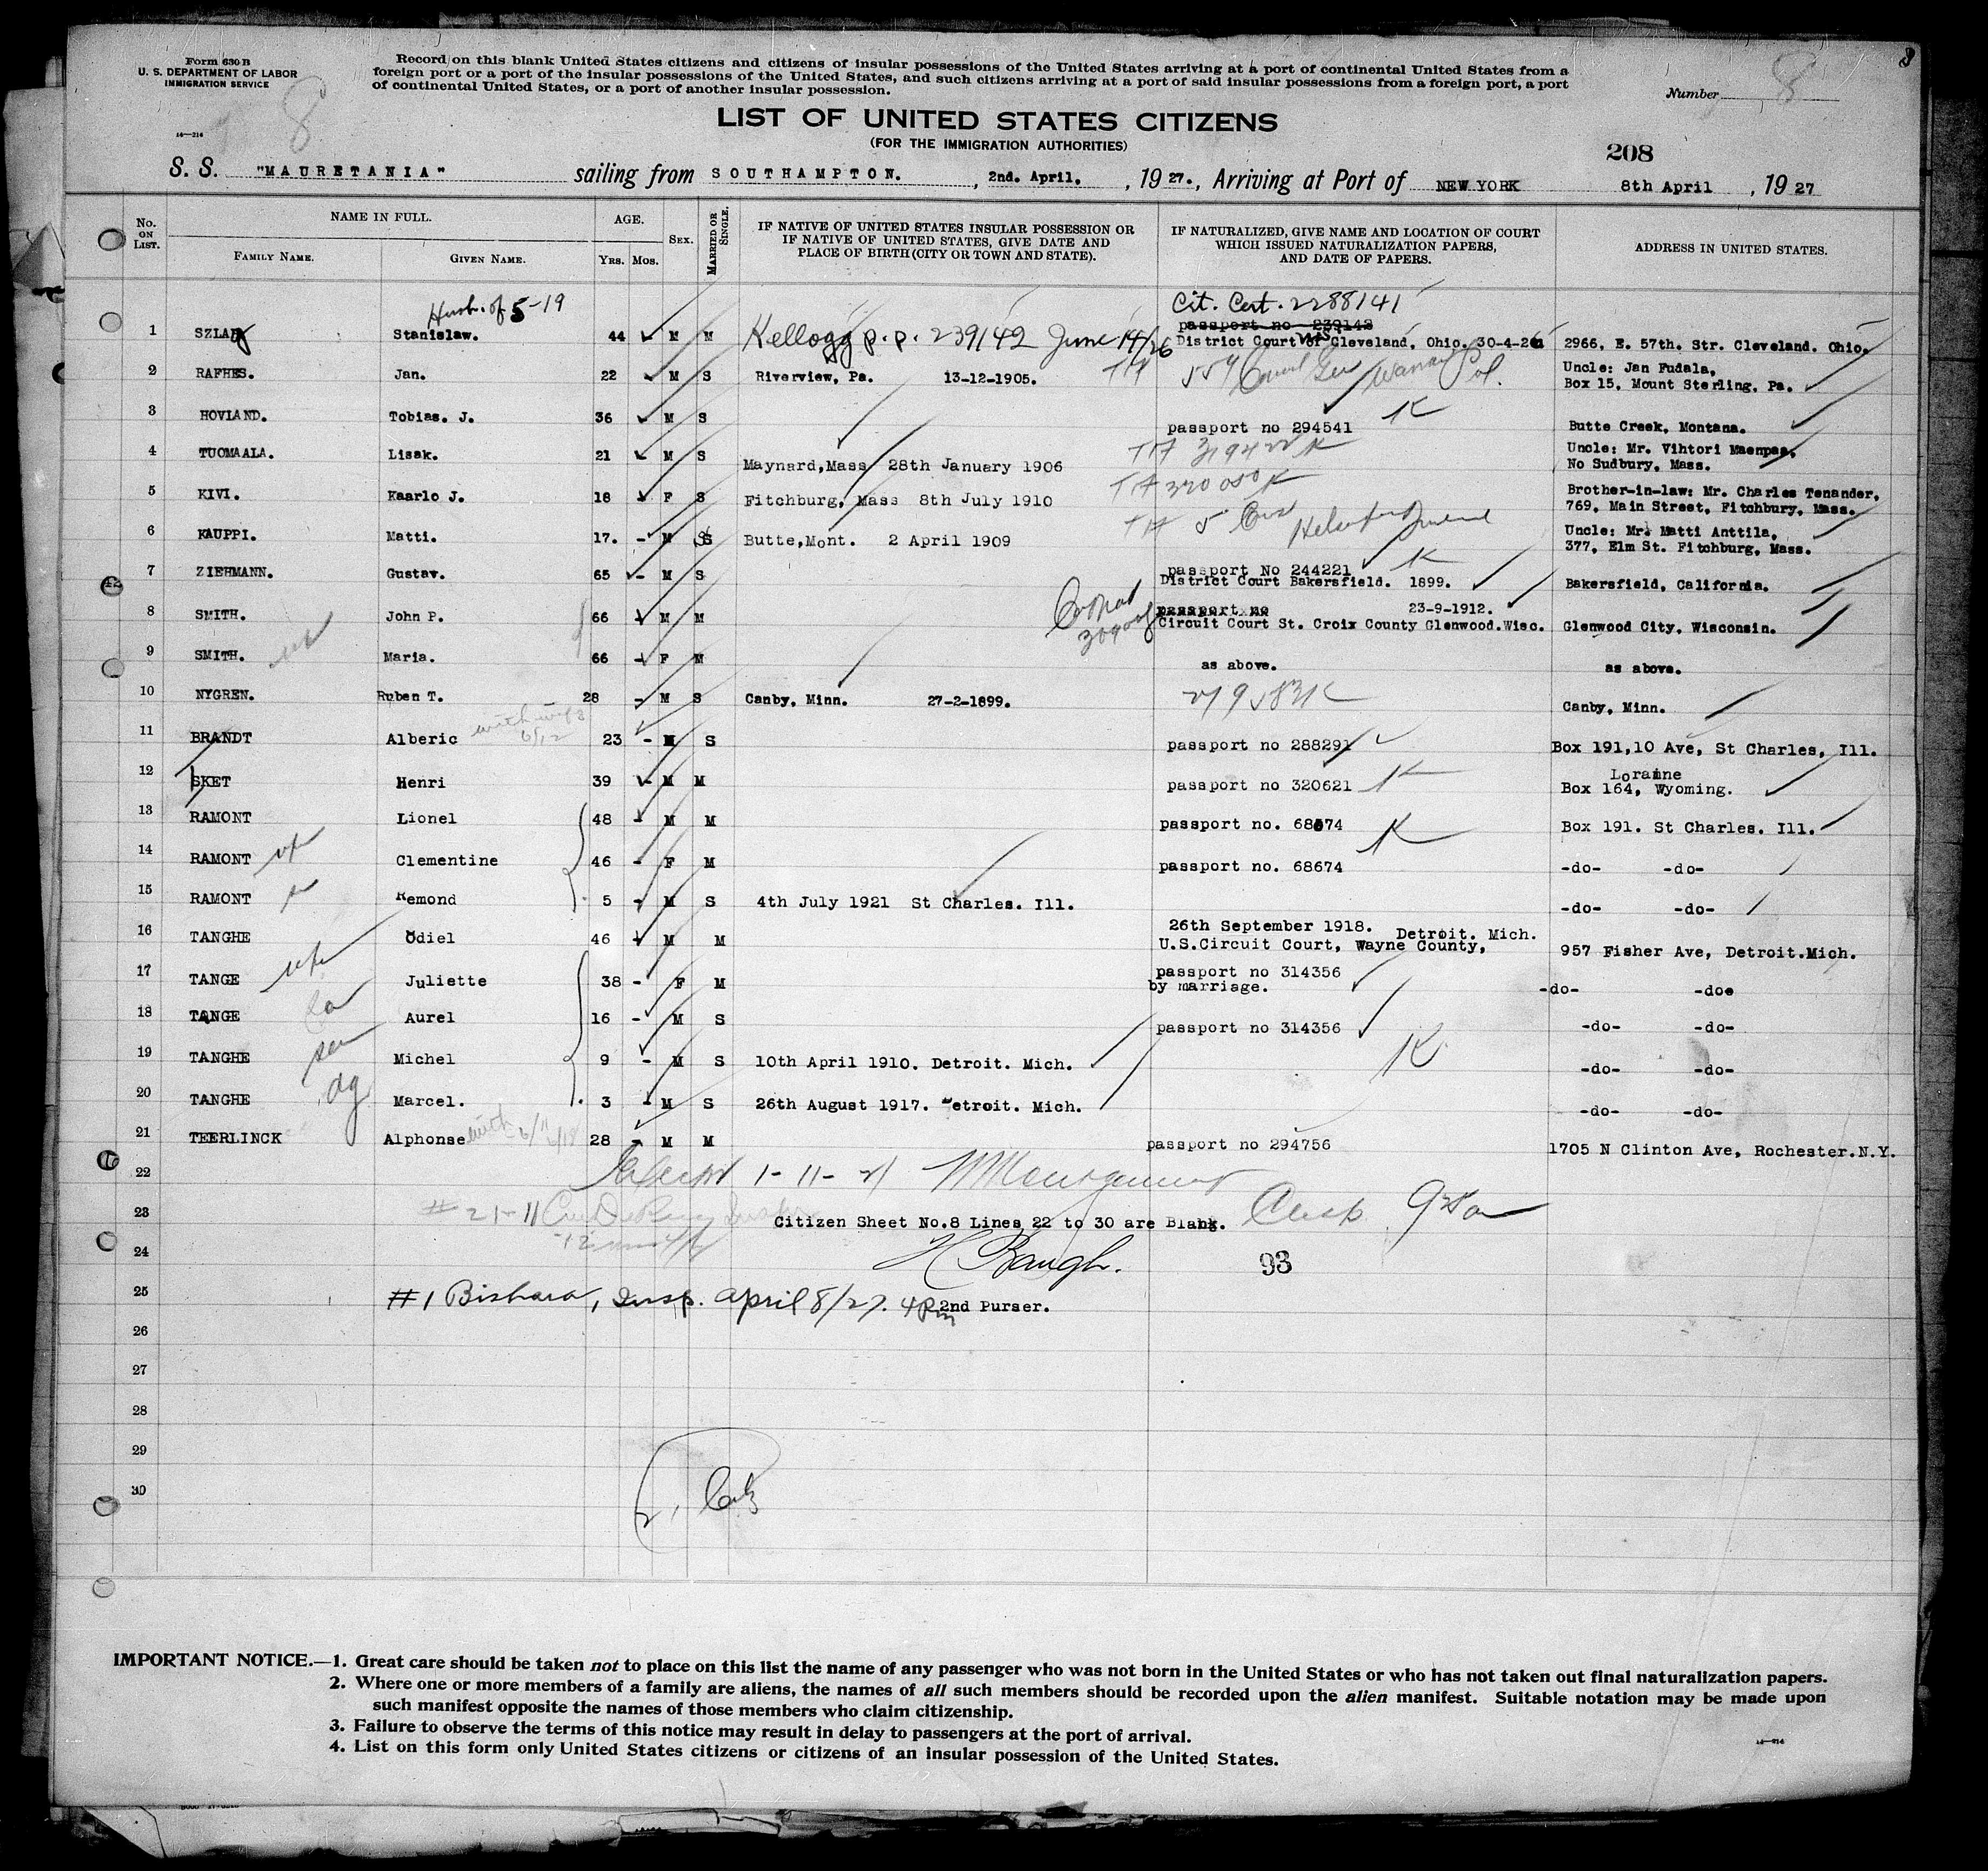 Form 630 B
U. S. DEPARTMENT OF LABOR
IMMIGRATION SERVICE
14—214
8
Record on this blank United States citizens and citizens of insular possessions of the United States arriving at a port of continental United States from a
foreign port or a port of the insular possessions of the United States, and such citizens arriving at a port of said insular possessions from a foreign port, a port
of continental United States, or a port of another insular possession.
Number 8
LIST OF UNITED STATES CITIZENS
(FOR THE IMMIGRATION AUTHORITIES)
208
S. S. "MAURETANIA" sailing from SOUTHAMPTON. , 2nd. April. , 19 27. , Arriving at Port of NEW YORK 8th April , 19 27
No. ON LIST. NAME IN FULL. AGE. SEX. MARRIED OR SINGLE. IF NATIVE OF UNITED STATES INSULAR POSSESSION OR IF NATIVE OF UNITED STATES, GIVE DATE AND PLACE OF BIRTH (CITY OR TOWN AND STATE). IF NATURALIZED, GIVE NAME AND LOCATION OF COURT WHICH ISSUED NATURALIZATION PAPERS, AND DATE OF PAPERS. ADDRESS IN UNITED STATES.
FAMILY NAME. GIVEN NAME. YRS. MOS.
Husb. of 5-19 Cit. Cert. 2288141
passport no 239142
1 Stanislaw. 44 M M Kellogg p.p. 239142 June 14/26 District Court Cleveland, Ohio. 30-4-26 2966, E. 57th. Str. Cleveland. Ohio.
2 RAFHES. Jan. 22 M S Riverview, Pa. 13-12-1905. Uncle: Jan Fudala,
Box 15, Mount Sterling, Pa.
3 HOVLAND. Tobias. J. 36 M S passport no 294541 K Butte Creek, Montana.
4 TUOMAALA. Lisak. 21 M S Maynard,Mass 28th January 1906 K Uncle: Mr. Vihtori Maenpaa,
No Sudbury, Mass.
5 KIVI. Kaarlo J. 18 F S Fitchburg, Mass 8th July 1910 320050 K Brother-in-law: Mr. Charles Tenander,
769, Main Street, Fitchbury, Mass.
6 KAUPPI. Matti. 17. - M S Butte,Mont. 2 April 1909 Uncle: Mr. Matti Anttila,
377, Elm St. Fitchburg, Mass.
7 ZIEHMANN. Gustav. 65 - M S passport No 244221 K
District Court Bakersfield. 1899. Bakersfield, California.
8 SMITH. John P. 66 M M passport no 23-9-1912.
Circuit Court St. Croix County Glenwood.Wisc. Glenwood City, Wisconsin.
9 SMITH. Maria. 66 - F M as above. as above.
10 NYGREN. Ruben T. 28 - M S Canby, Minn. 27-2-1899. Canby, Minn.
with wife
6/12
11 BRANDT Alberic 23 - M S passport no 288291 Box 191,10 Ave, St Charles, Ill.
12 SKET Henri 39 - M M passport no 320621 K Loraine
Box 164, Wyoming.
13 RAMONT Lionel 48 - M M passport no. 68674 K Box 191. St Charles. Ill.
14 RAMONT Clementine 46 - F M passport no. 68674 -do- -do-
15 RAMONT Remond 5 - M S 4th July 1921 St Charles. Ill. -do- -do-
16 TANGHE Odiel 46 - M M 26th September 1918. Detroit. Mich.
U.S.Circuit Court, Wayne County, 957 Fisher Ave, Detroit.Mich.
17 TANGE Juliette 38 - F M passport no 314356
by marriage. -do- -doe
18 TANGE Aurel 16 - M S passport no 314356 -do- -do-
19 TANGHE Michel 9 - M S 10th April 1910. Detroit. Mich. K -do- -do-
20 TANGHE Marcel. 3 - M S 26th August 1917. Detroit. Mich. -do- -do-
21 TEERLINCK Alphonse 28 - M M passport no 294756 1705 N Clinton Ave, Rochester.N.Y.
22
23 Citizen Sheet No.8 Lines 22 to 30 are Blank.
24 H Baugh. 93
25 #1 Bishara, Insp. April 8/27. 4 Pm 2nd Purser.
26
27
28
29
30
IMPORTANT NOTICE.—1. Great care should be taken not to place on this list the name of any passenger who was not born in the United States or who has not taken out final naturalization papers.
2. Where one or more members of a family are aliens, the names of all such members should be recorded upon the alien manifest. Suitable notation may be made upon
such manifest opposite the names of those members who claim citizenship.
3. Failure to observe the terms of this notice may result in delay to passengers at the port of arrival.
4. List on this form only United States citizens or citizens of an insular possession of the United States.
14—214